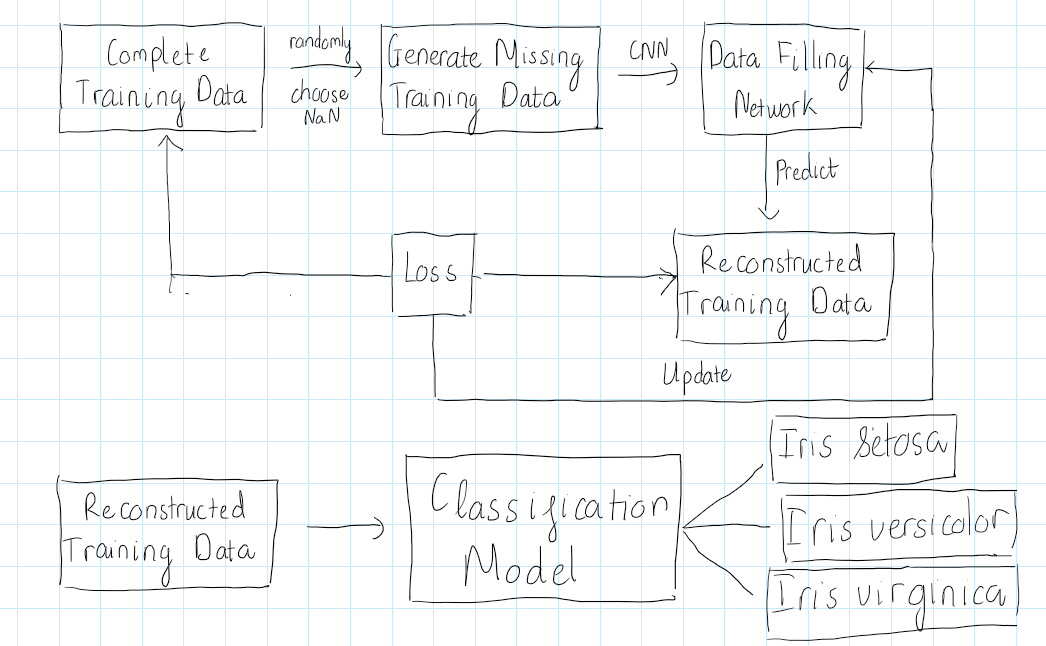 Complete
Training Data
randomly
choose
NaN
Generate Missing
Training Data
CNN
Data Filling
Network
Predict
Loss
Reconstructed
Training Data
Update
Reconstructed
Training Data
Classification
Model
Iris Setosa
Iris versicolor
Iris virginica